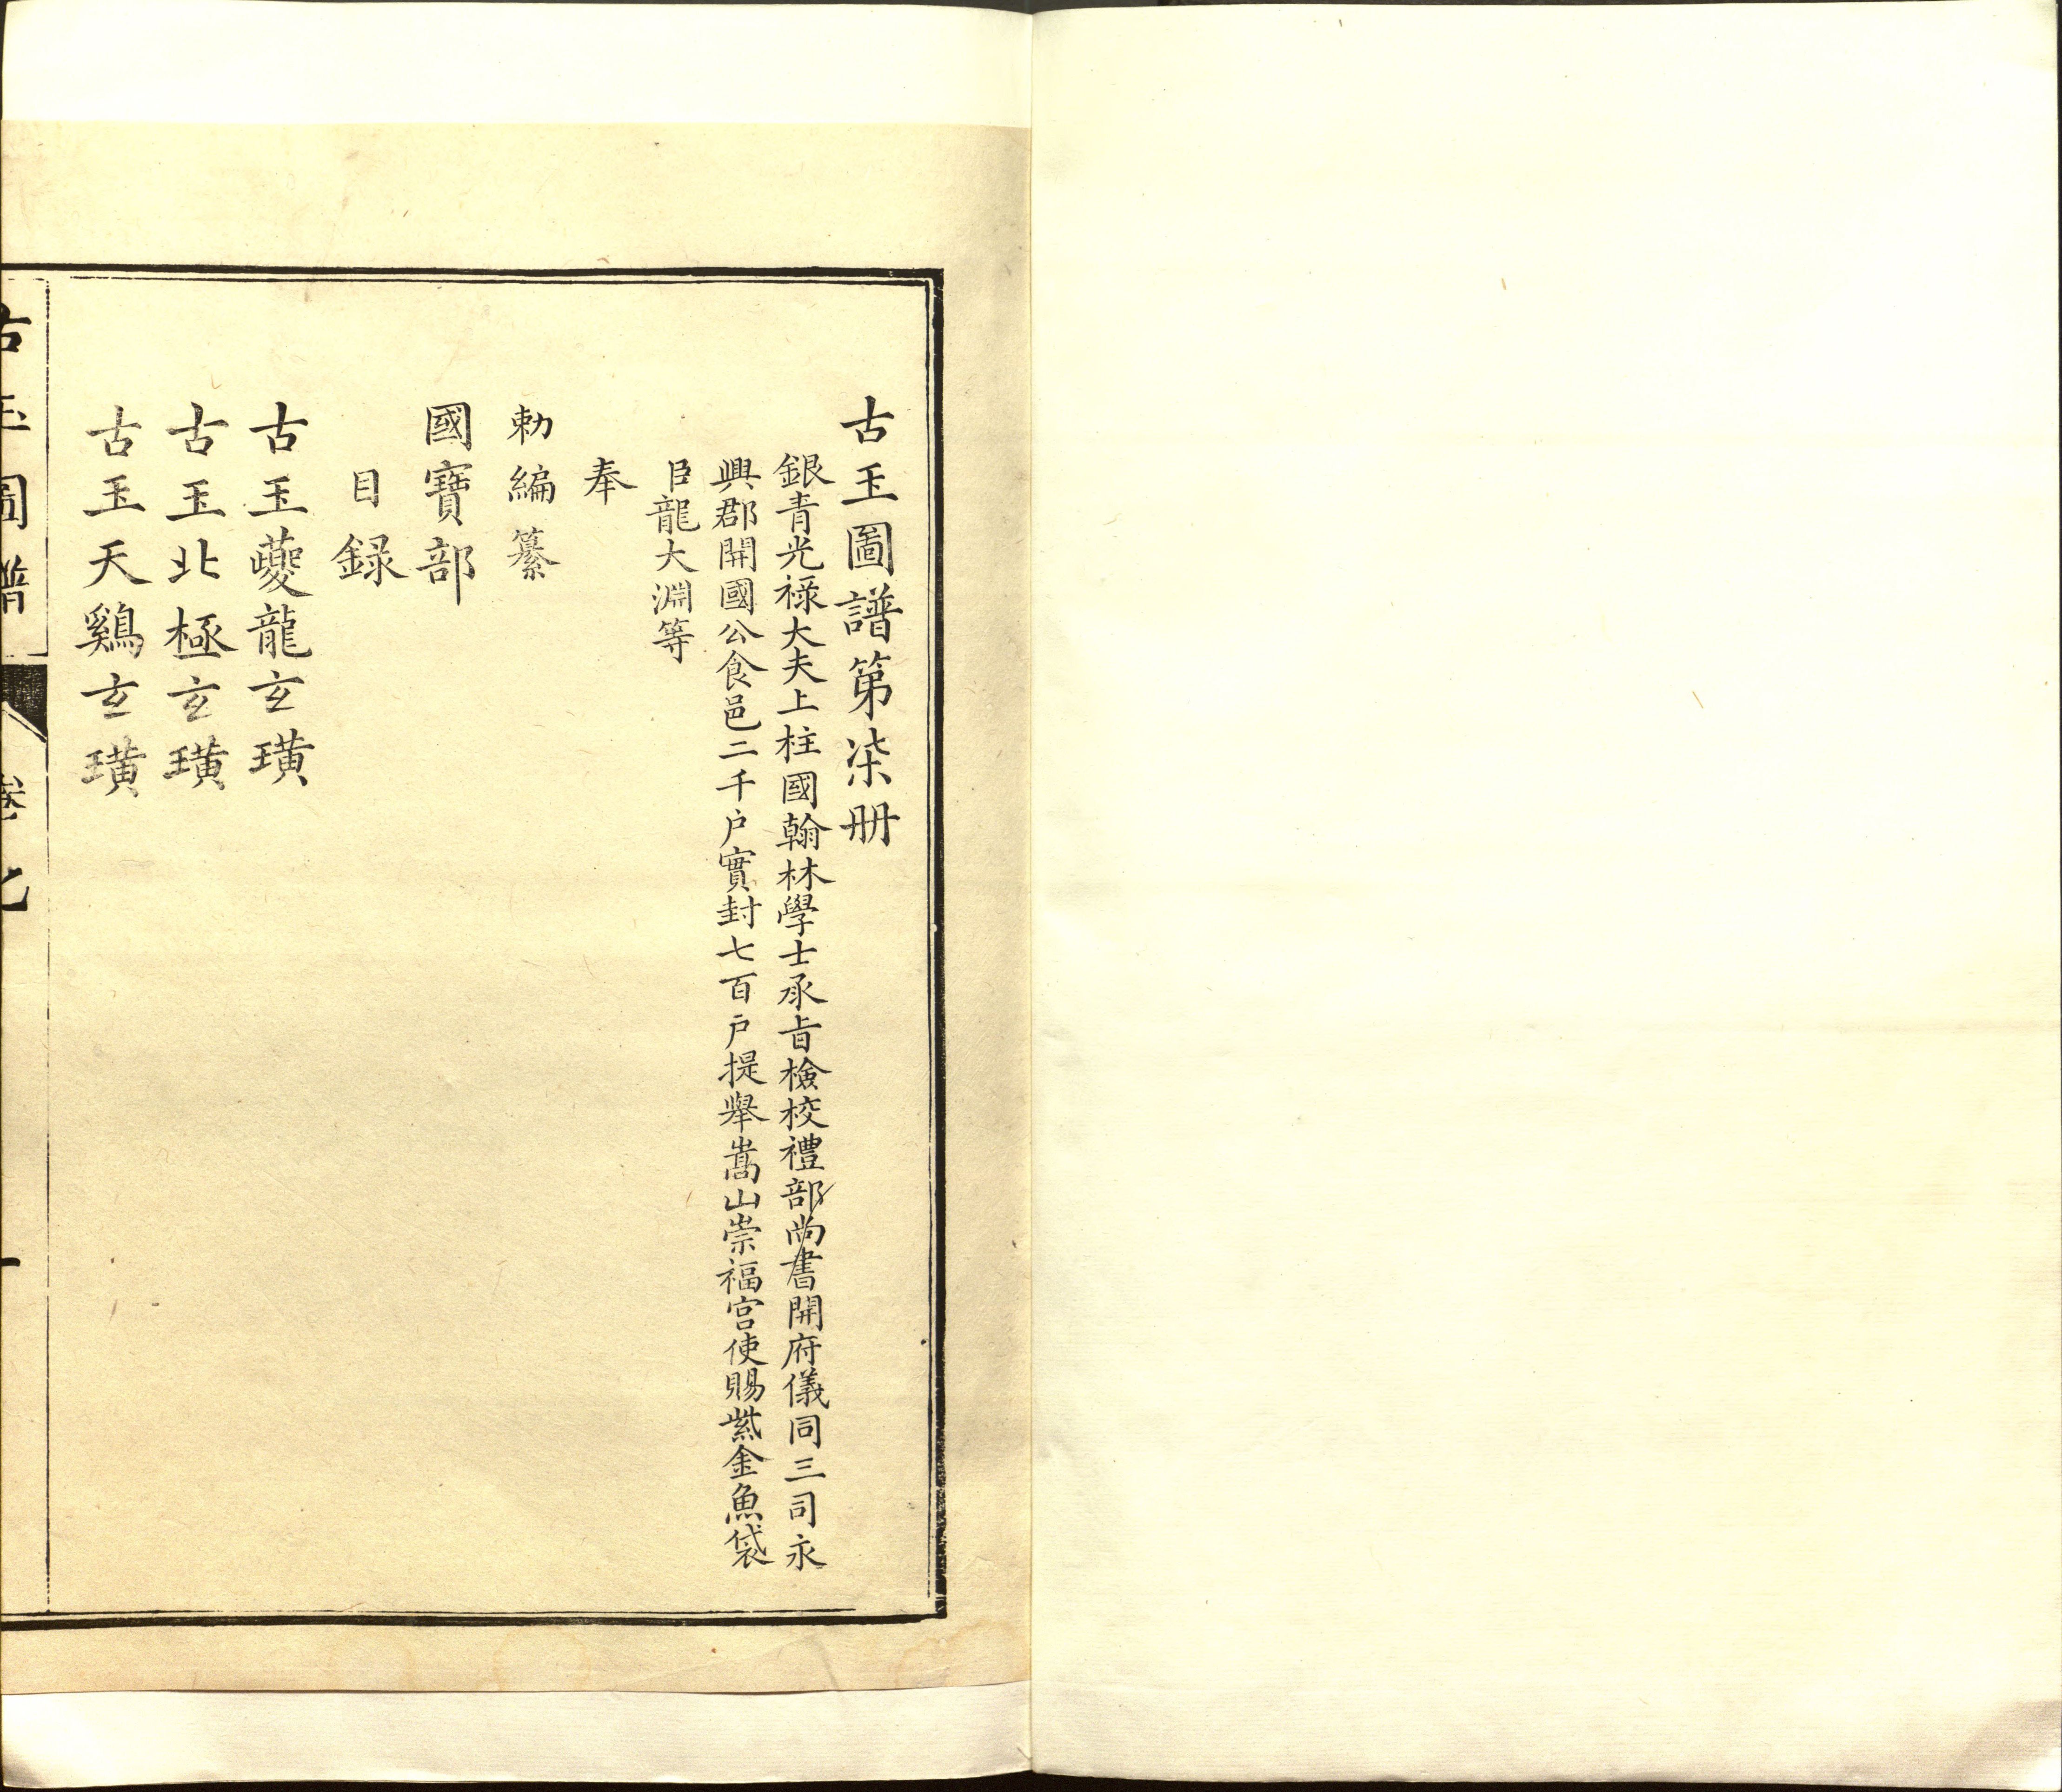 古玉圖譜第柒册
銀青光祿大夫上柱國翰林學士承旨檢校禮部尚書開府儀同三司永
興郡開國公食邑二千户實封七百户提舉嵩山崇福宫使賜紫金魚袋
臣龍大淵等
奉
勅編纂
國寶部
目録
古玉夔龍玄璜
古玉北極玄璜
古玉天鷄玄璜
古玉圖譜
卷七
一